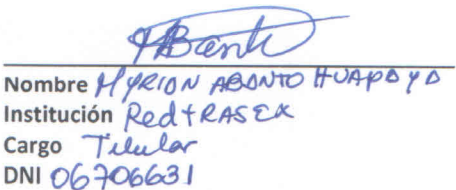 Nombre MYRION ABANTO HUAPAYA
Institución RedTRASEX
Cargo Titular
DNI 06706631